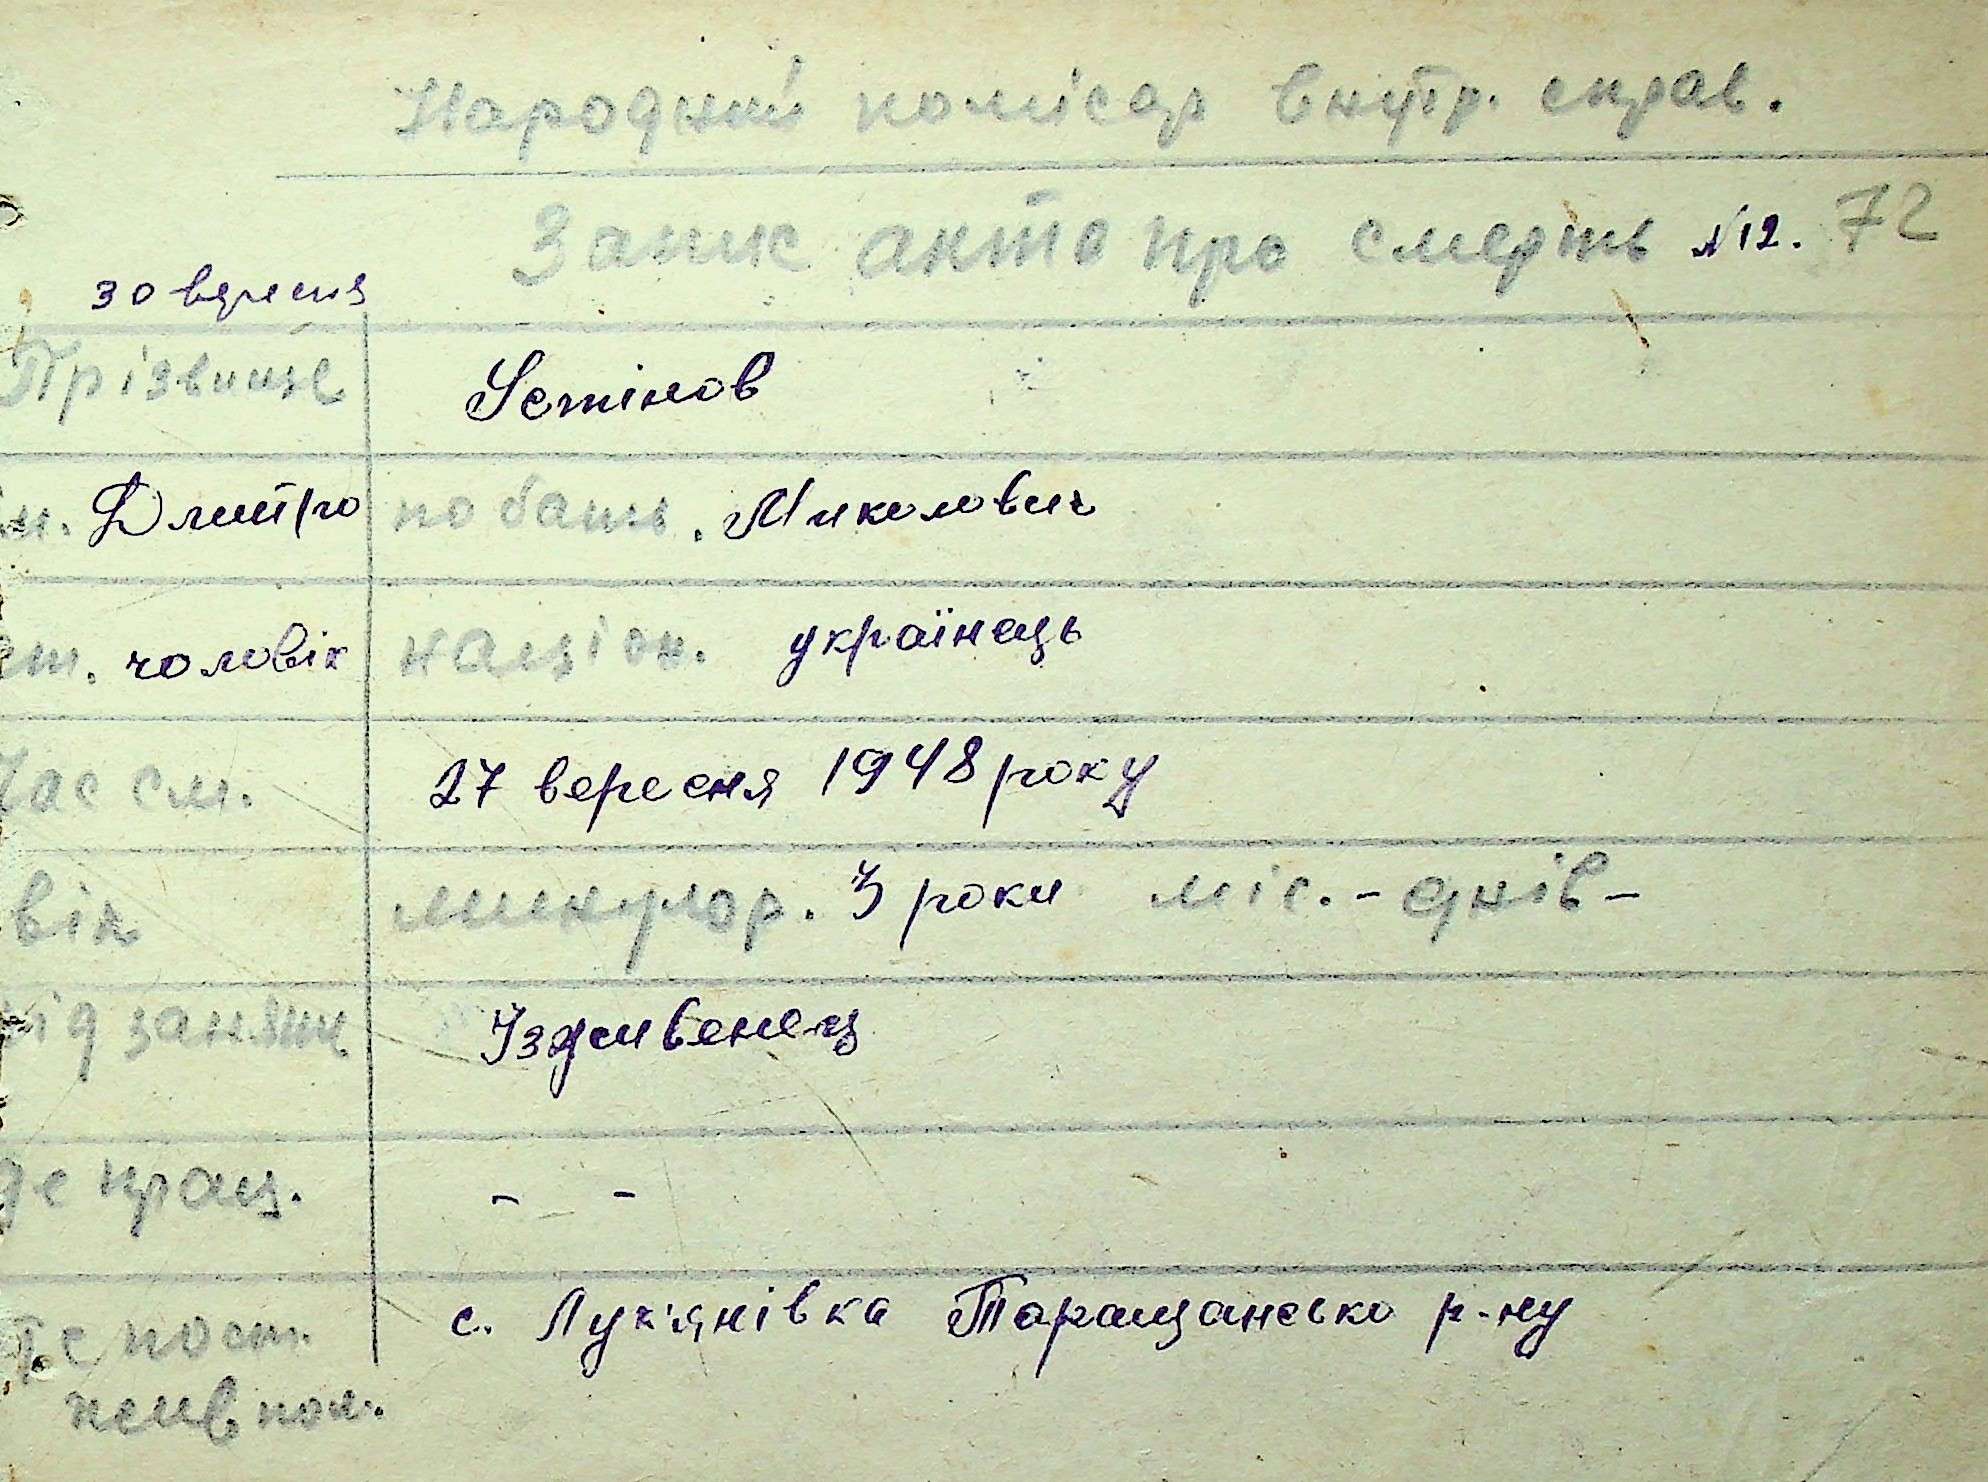 Народний комісар внутр. справ.
Запис акта про смерть №12. 72
30 вересня
Прізвище Устінов
м. Дмитро по бать. Миколович
ст. чоловік націон. українець
Час см. 27 вересня 1948 року
вік минулор. 3 роки міс. - днів -
від занять Ізживенец
де прац. - -
де пост. с. Лук'янівка Таращансько р-ну
жив пом.